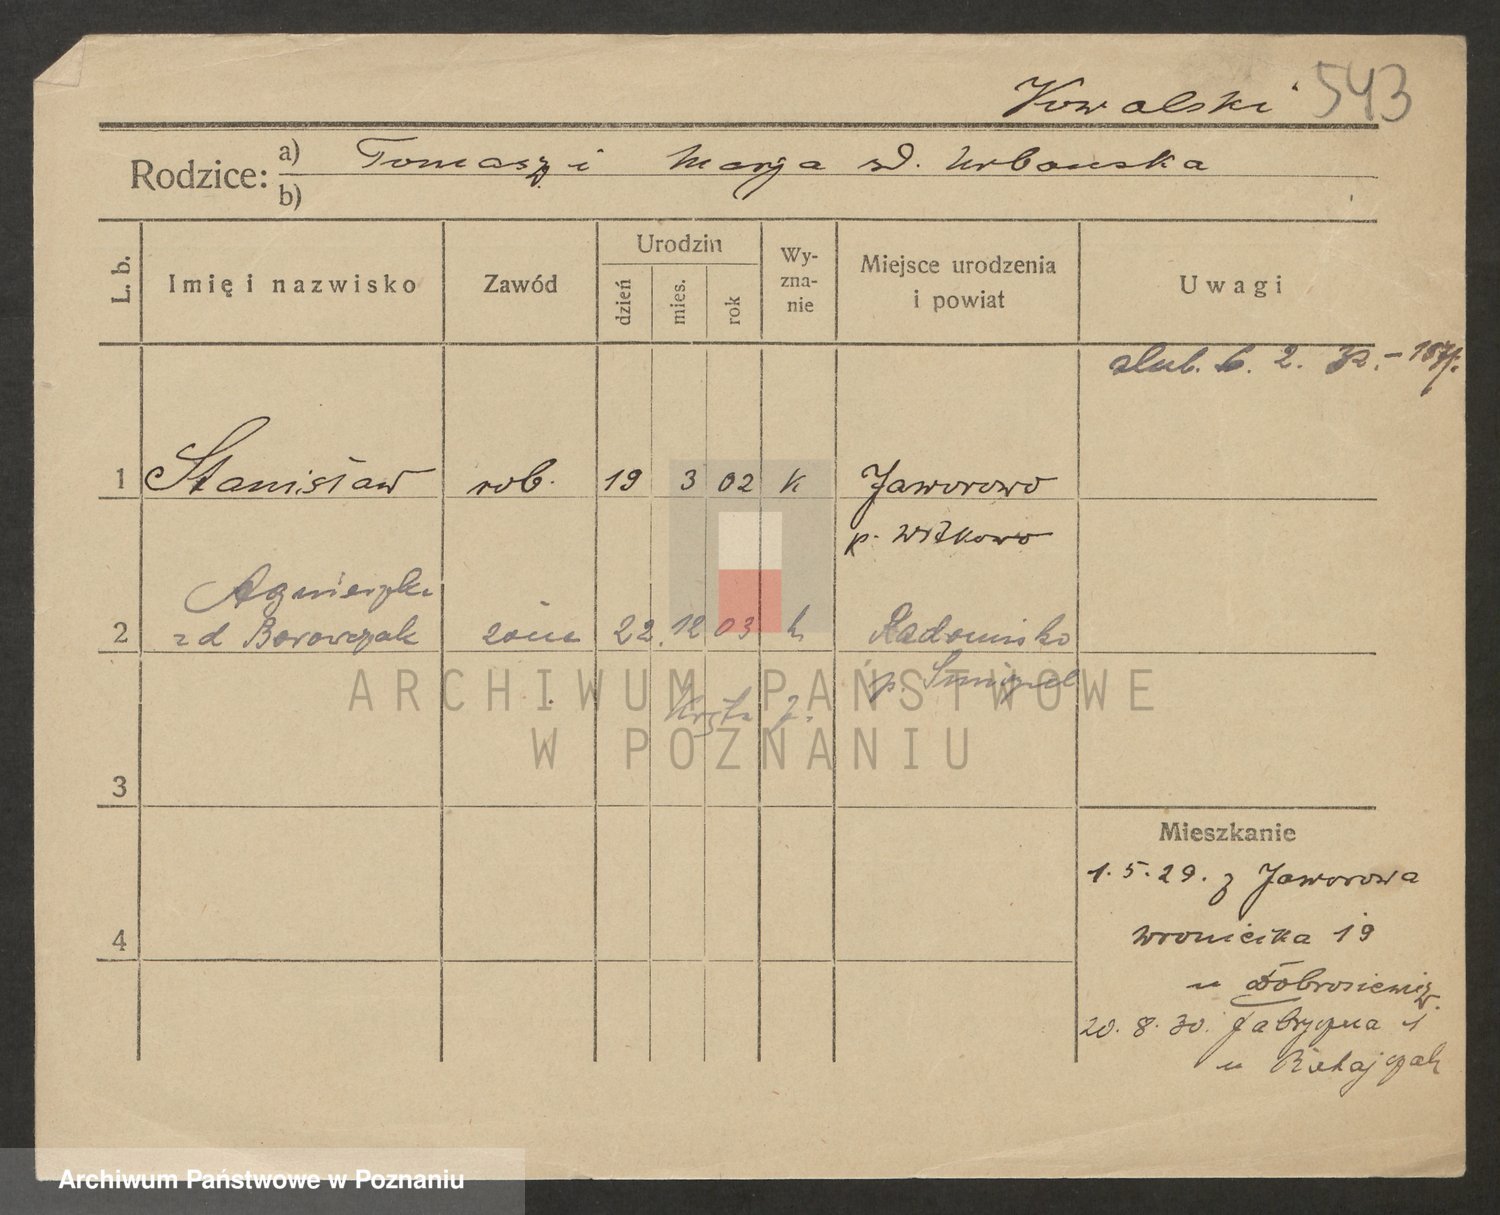 Kowalski 543
Rodzice: a) Tomasz i Marja zd. Urbańska
b)
L. b.
Imię i nazwisko
Zawód
Urodzin
dzień
mies.
rok
Wy-
zna-
nie
Miejsce urodzenia
i powiat
Uwagi
slub. 6. 2. 32.
1 Stanisław rob. 19 3 02 k Jaworowo
p. Witkowo
Agnieszka
2 zd Borowczak żona 22. 12 03 k. Radomisko
p. Śmigiel
3
4
Mieszkanie
1. 5. 29. z Jaworowa
Wroniecka 19
u Dobrosiewicz.
20. 8. 30. Fabryczna 1
u Ratajczak
ARCHIWUM PAŃSTWOWE
W POZNANIU
Archiwum Państwowe w Poznaniu